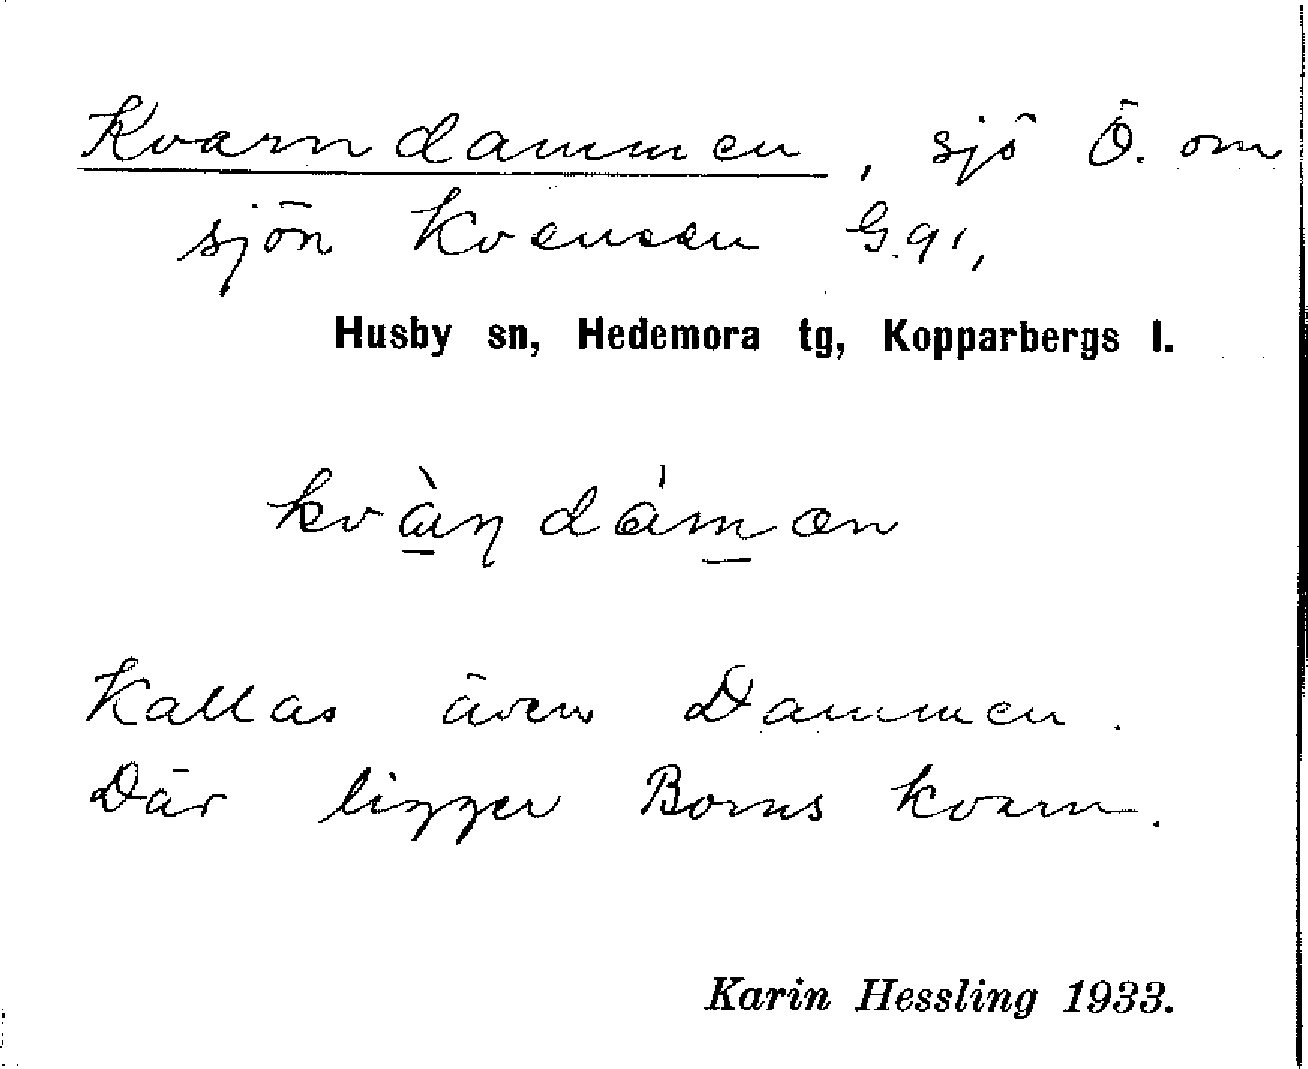 Kvarndammen, sjö Ö. om
sjön Kvensen G.91,
Husby sn, Hedemora tg, Kopparbergs l.
Kallas även Dammen.
Där ligger Borns kvarn.
Karin Hessling 1933.